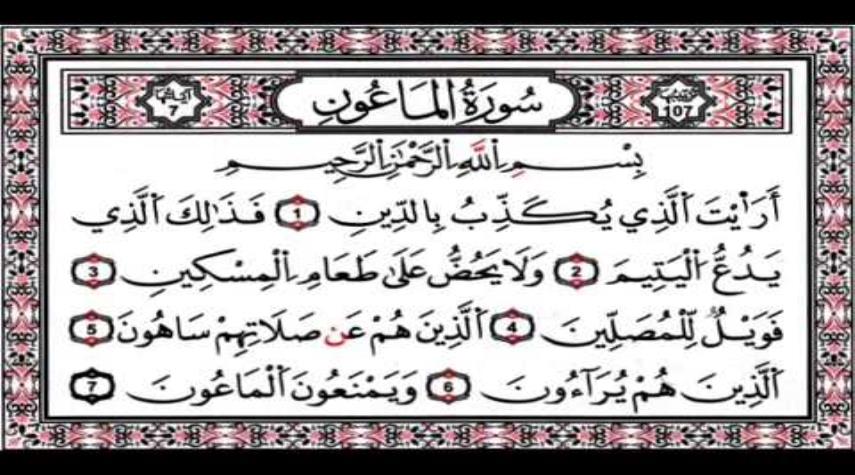 آياتها 7
سُورَةُ المَاعُونِ
107
بِسْمِ اللَّهِ الرَّحْمَٰنِ الرَّحِيمِ
أَرَأَيْتَ الَّذِي يُكَذِّبُ بِالدِّينِ 1 فَذَٰلِكَ الَّذِي
يَدُعُّ الْيَتِيمَ 2 وَلَا يَحُضُّ عَلَىٰ طَعَامِ الْمِسْكِينِ 3
فَوَيْلٌ لِّلْمُصَلِّينَ 4 الَّذِينَ هُمْ عَن صَلَاتِهِمْ سَاهُونَ 5
الَّذِينَ هُمْ يُرَآءُونَ 6 وَيَمْنَعُونَ الْمَاعُونَ 7